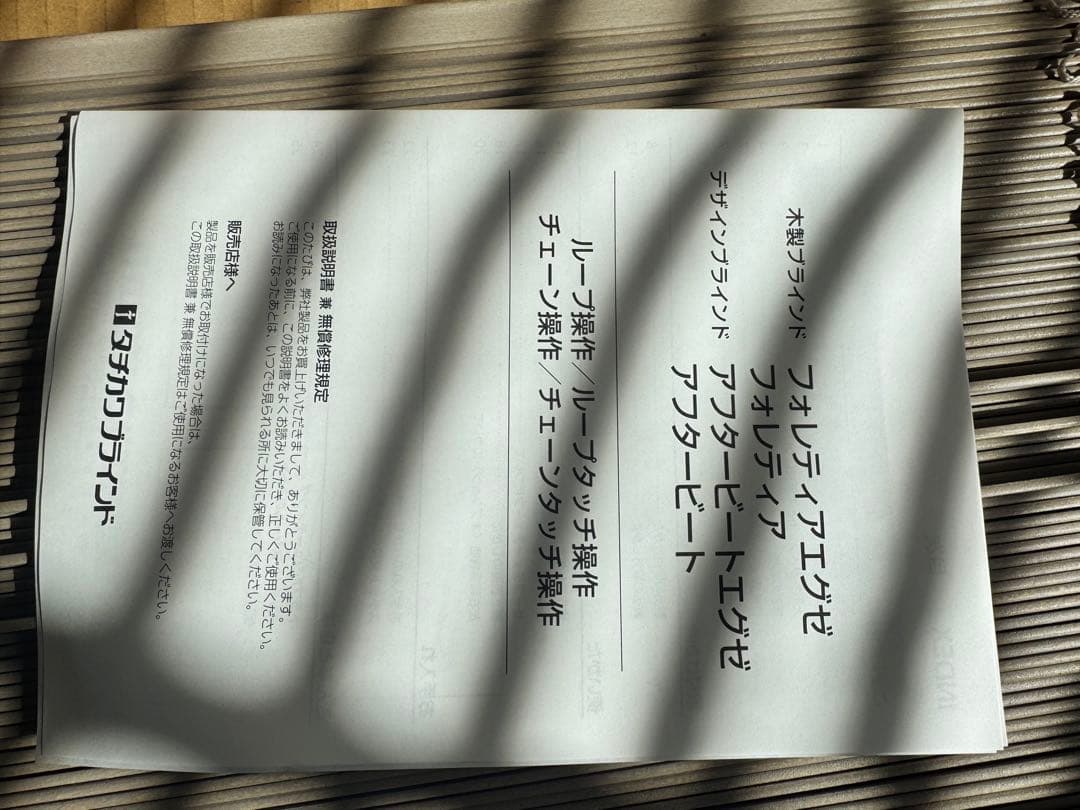 木製ブラインド フォレティアエグゼ
フォレティア
デザインブラインド アフタービートエグゼ
アフタービート
ループ操作／ループタッチ操作
チェーン操作／チェーンタッチ操作
取扱説明書 兼 無償修理規定
このたびは、弊社製品をお買上げいただきまして、ありがとうございます。
ご使用になる前に、この説明書をよくお読みいただき、正しくご使用ください。
お読みになったあとは、いつでも見られる所に大切に保管してください。
販売店様へ
製品を販売店様でお取付けになった場合は、
この取扱説明書 兼 無償修理規定はご使用になるお客様へお渡しください。
タチカワブラインド